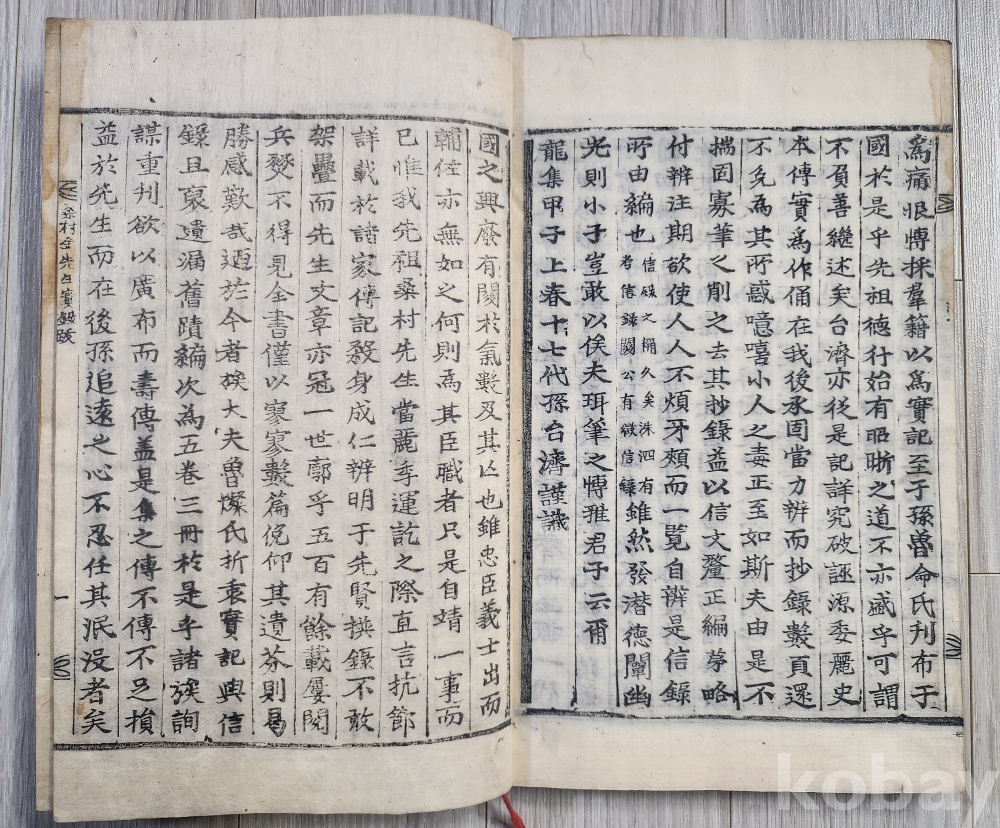 為痛恨博採羣籍以為實記至于孫魯命氏刋布于
國於是乎先祖德行始有昭晣之道不亦盛乎可謂
不負善繼述矣台濟亦從是記詳究破誣源委麗史
本傳實為作俑在我後承固當力辨而抄錄數頁還
不免為其所惑噫嘻小人之毒正至如斯夫由是不
揣固寡筆之削之去其抄錄益以信文釐正編芧略
付辨注期欲使人人不煩牙頰而一覽自辨是信錄
所由編也
信
之
久矣洙泗有
考信錄闕公有徵信錄
雖然發潛德闡幽
光則小子豈敢以俟夫珥筆之博雅君子云爾
龍集甲子上春十七代孫台濟謹識
國之興廢有關於氣數及其亡也雖忠臣義士出而
輔佐亦無如之何則為其臣職者只是自靖一事而
已惟我先祖桑村先生當麗季運訖之際直言抗節
詳載於諸家傳記殺身成仁辨明于先賢撰錄不敢
架疊而先生文章亦冠一世廓乎五百有餘載屢閱
兵燹不得見全書僅以寥寥數篇俛仰其遺芬則曷
勝感歎哉迺於今者族大夫魯燦氏折衷實記與信
錄且裒遺漏舊蹟編次為五卷三冊於是乎諸族詢
謀重刋欲以廣布而壽傳盖是集之傳不傳不足損
益於先生而在後孫追遠之心不忍任其泯沒者矣
桑村金先生實錄跋
一
kobay